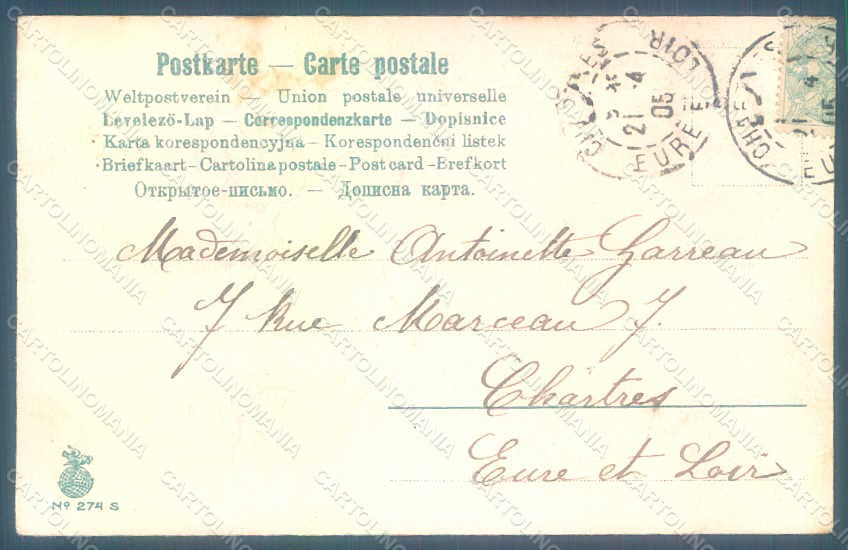 Postkarte — Carte postale
Weltpostverein — Union postale universelle
Levelező-Lap — Correspondenzkarte — Dopisnice
Karta korespondencyjna — Korespondenční listek
Briefkaart — Cartolina postale — Post card — Brefkort
Открытое-письмо. — Дописна карта.
CHARTRES
21 4
05
EURE ET LOIR
21 4
05
Mademoiselle Antoinette Garreau
7 Rue Marceau 7.
Chartres
Eure et Loir
Nº 274 S
CARTOLINOMANIA